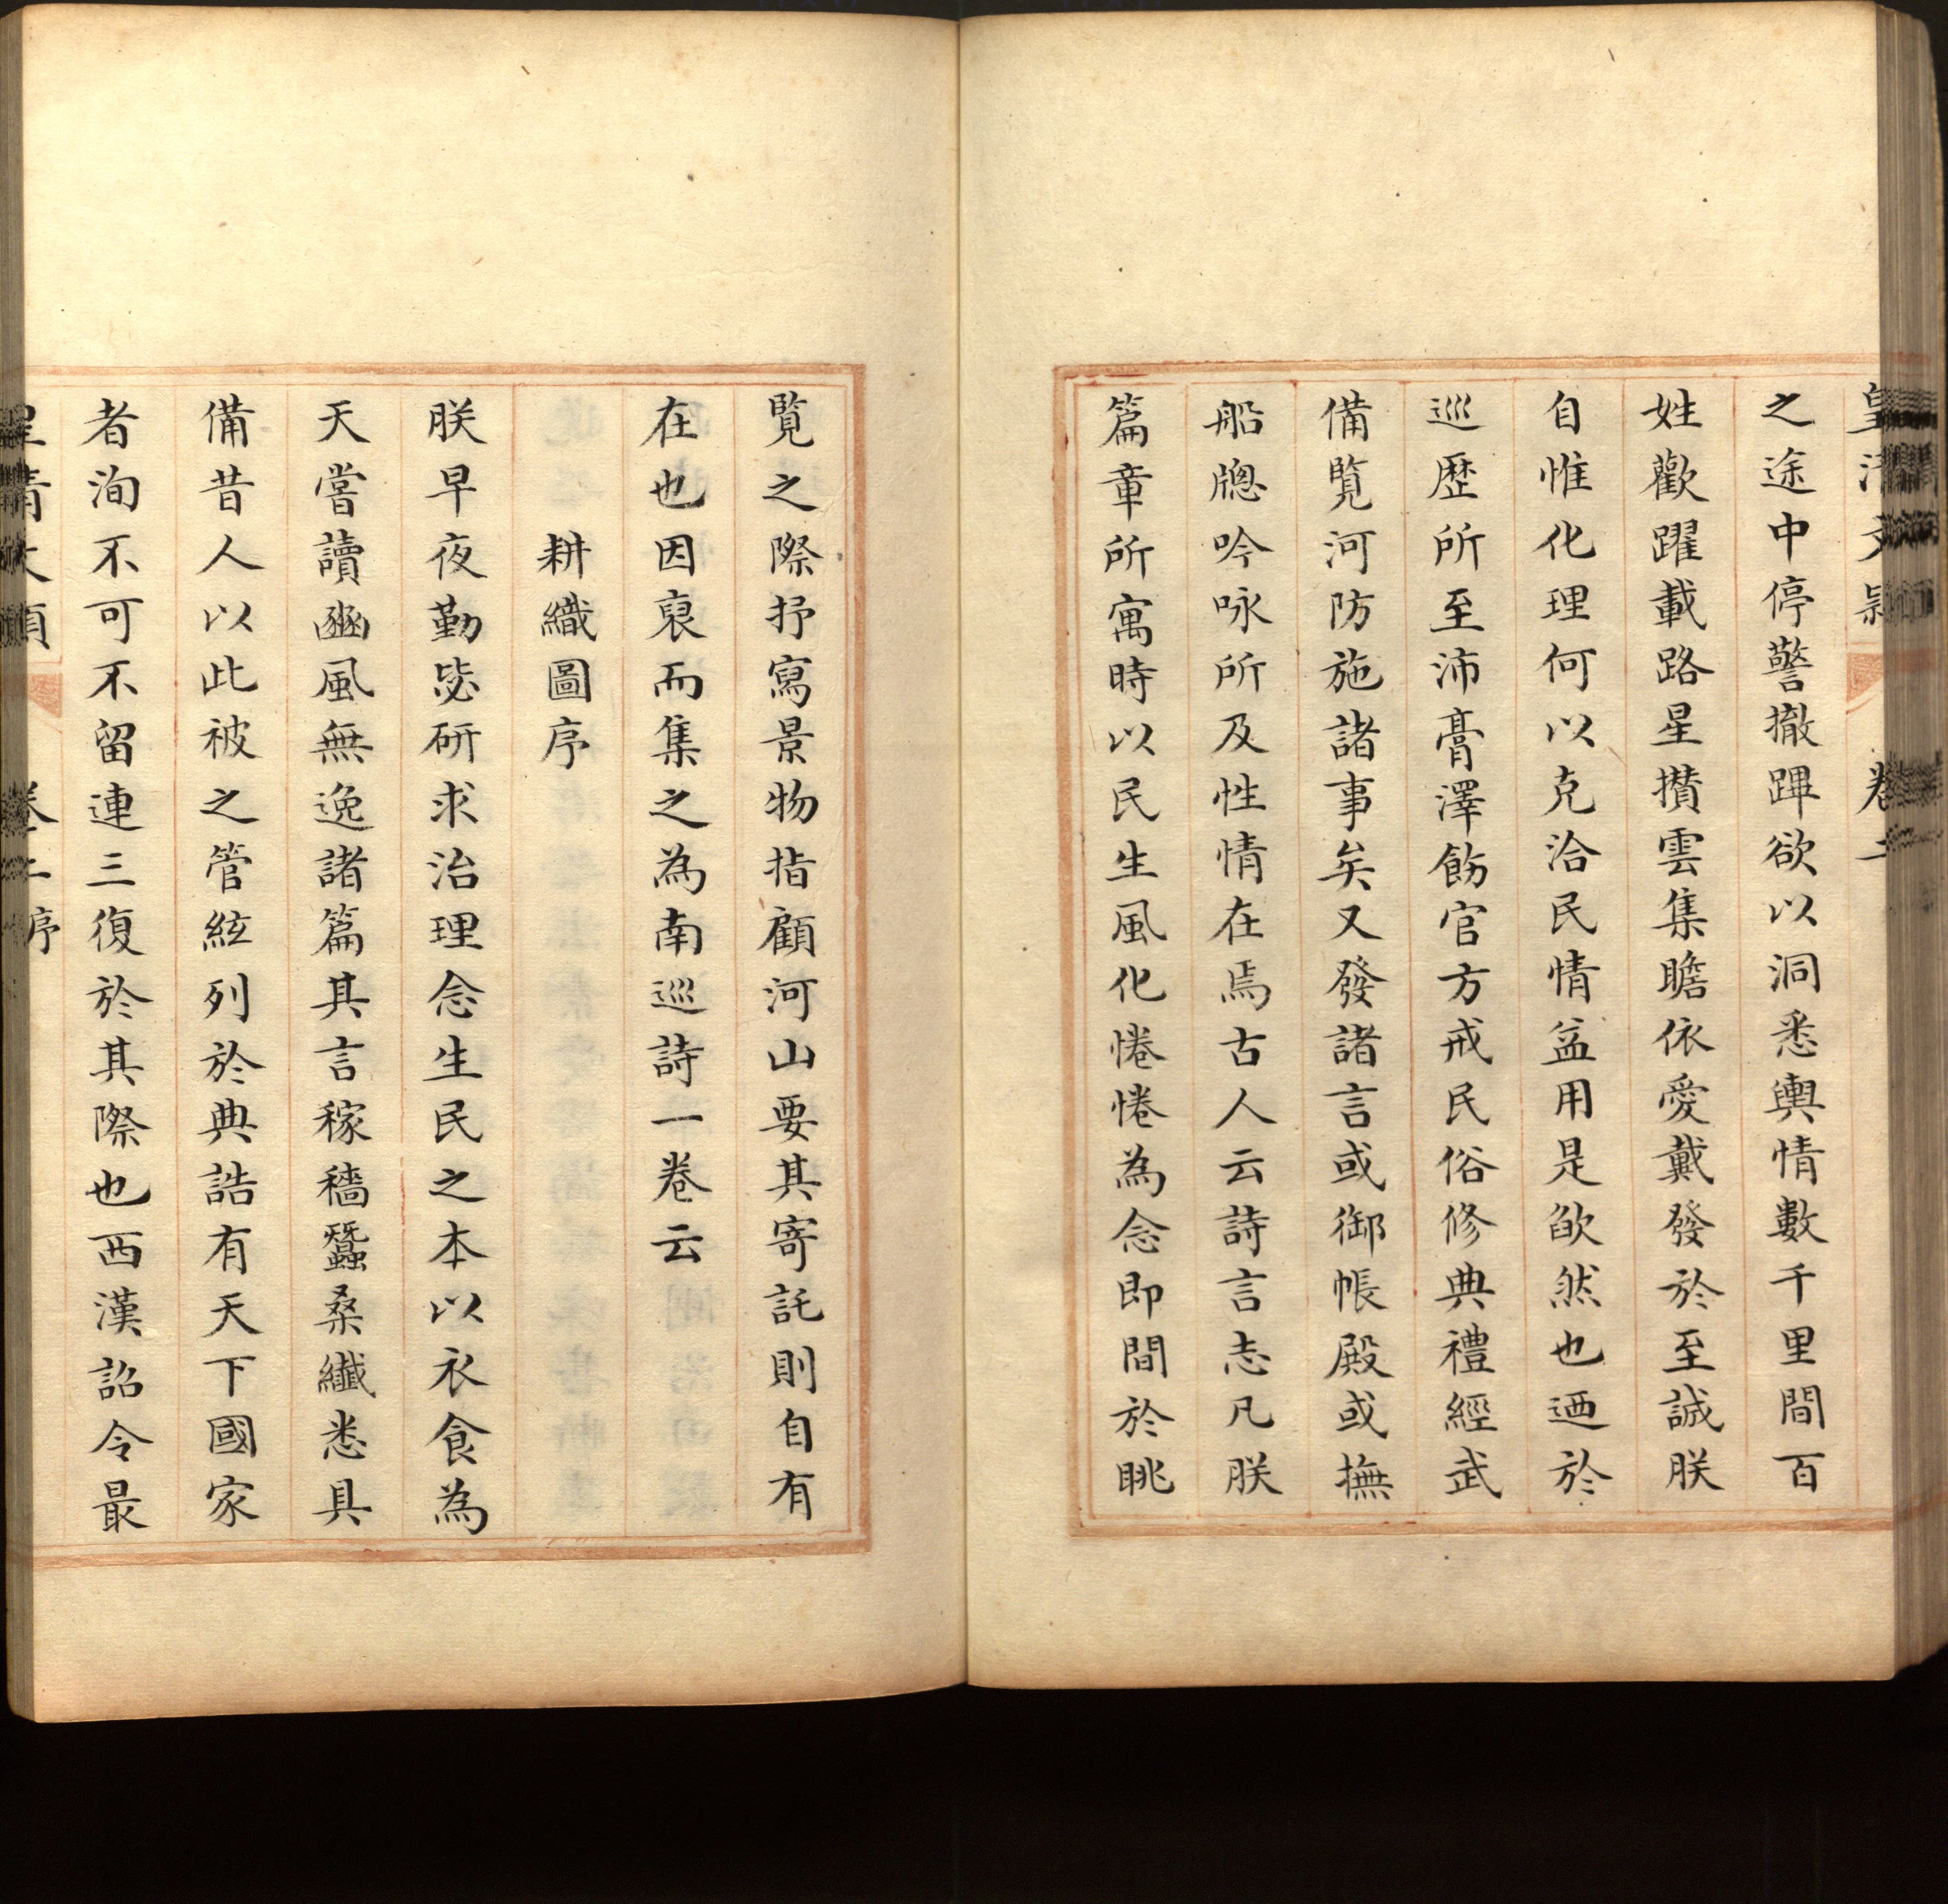 皇清文穎 卷二
之途中停警撤蹕欲以洞悉輿情數千里間百
姓歡躍載路星攢雲集瞻依愛戴發於至誠朕
自惟化理何以克洽民情益用是欿然也迺於
巡歷所至沛膏澤飭官方戒民俗修典禮經武
備覽河防施諸事矣又發諸言或御帳殿或撫
船牕吟咏所及性情在焉古人云詩言志凡朕
篇章所寓時以民生風化惓惓為念即間於眺
覽之際抒寫景物指顧河山要其寄託則自有
在也因裒而集之為南巡詩一卷云
耕織圖序
朕早夜勤毖研求治理念生民之本以衣食為
天嘗讀豳風無逸諸篇其言稼穡蠶桑纖悉具
備昔人以此被之管絃列於典誥有天下國家
者洵不可不留連三復於其際也西漢詔令最
皇清文穎 卷二序